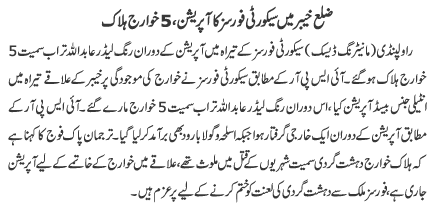 ضلع خیبر میں سیکورٹی فورسز کا آپریشن، 5 خوارج ہلاک
راولپنڈی (مانیٹرنگ ڈیسک) سیکورٹی فورسز کے تیراہ میں آپریشن کے دوران رنگ لیڈر عابد اللہ تراب سمیت 5
خوارج ہلاک ہو گئے۔ آئی ایس پی آر کے مطابق سیکورٹی فورسز نے خوارج کی موجودگی پر خیبر کے علاقے تیراہ میں
انٹیلی جنس بیسڈ آپریشن کیا، اس دوران رنگ لیڈر عابد اللہ تراب سمیت 5 خوارج مارے گئے۔ آئی ایس پی آر کے
مطابق آپریشن کے دوران ایک خارجی گرفتار ہوا جبکہ اسلحہ و گولا بارود بھی برآمد کر لیا گیا۔ ترجمان پاک فوج کا کہنا ہے
کہ ہلاک خوارج دہشت گردی سمیت شہریوں کے قتل میں ملوث تھے، علاقے میں خوارج کے خاتمے کے لیے آپریشن
جاری ہے، فورسز ملک سے دہشت گردی کی لعنت کو ختم کرنے کے لیے پرعزم ہیں۔